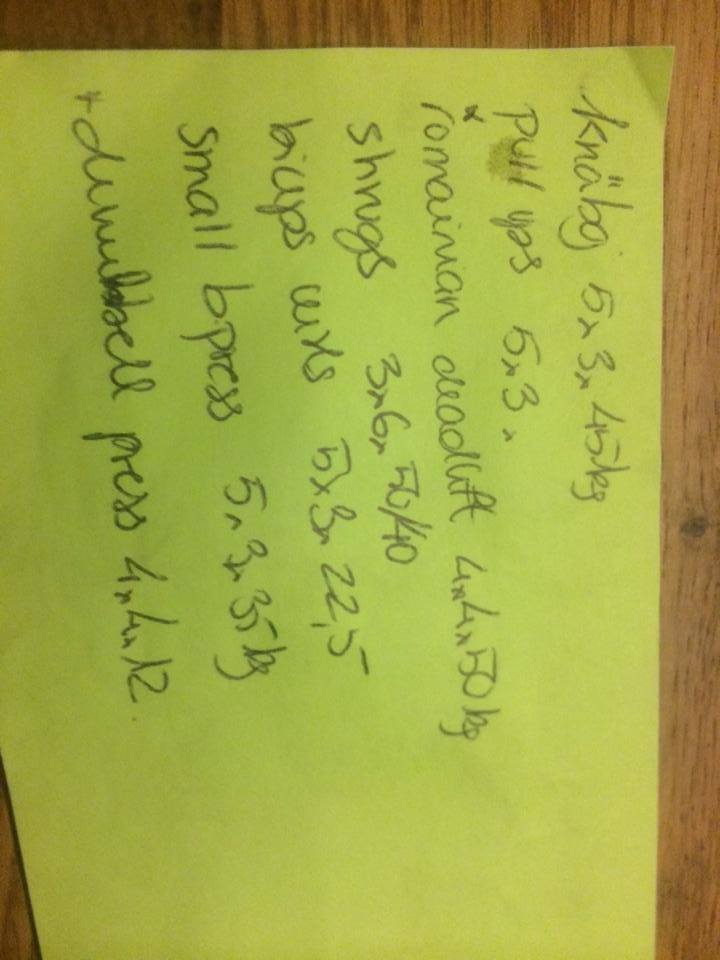 knäbøj 5x3x45kg
pull ups 5x3x
romainian deadlift 4x4x50kg
shrugs 3x6x50/40
biceps curls 5x3x22,5
small bpress 5x3x35kg
+ dumbbell press 4x4x12